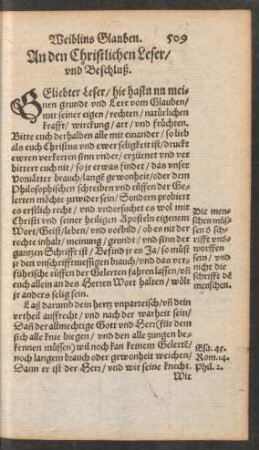 Weiblins Glauben. 509
An den Christlichen Leser/
vnd Beschluß.
GEliebter Leser/ hie hastu nu mei-
nen grundt vnd Lere vom Glauben/
mit seiner eigen/ rechten/ natürlichen
krafft/ wirckung/ art/ vnd früchten.
Bitte euch derhalben alle mit einander/ so lieb
als euch Christus vnd ewer seligkeit ist/ druckt
ewren verkerten sinn vnder/ erzürnet vnd ver
bittert euch nit/ so jr etwas findet/ das vnser
brauch/ lange gewonheit/ oder dem
Philosophischen schreiben vnd rüffen der Ge-
lerten möchte zuwider sein/ Sondern probiert
es erstlich recht/ vnd vndersuchet es wol mit
Christi vnd seiner heiligen Aposteln eigenem
Wort/ Geist/ leben/ vnd vorbild/ ob es mit der
rechte inhalt/ meinung/ grundt/ vnd sinn der
gantzen Schrifft ist/ Befind jr es Ja/ so müst
jr den vnschrifftmessigen brauch/ vnd das ver-
führische rüffen der Gelerten fahren lassen/ vñ
euch allein an des Herren Wort halten/ wölt
jr anders selig sein.
Laß darumb dein hertz vnparteisch/ vñ dein
vrtheil auffrecht/ vnd nach der warheit sein/
Daß der allmechtige Gott vnd Herr (für dem
sich alle knie biegen/ vnd den alle zungen be-
kennen müssen) wil noch kan keinem Gelertē/
noch langem brauch oder gewonheit weichen/
Dann er ist der Herr/ vnd wir seine knecht.
Wir
Die men-
schen müs-
sen d̕ sch-
rifft vn̄t-
worffen
sein/ vnd
nicht die
schrifft dē
menschen.
Esa. 45.
Rom. 14.
Phil. 2.